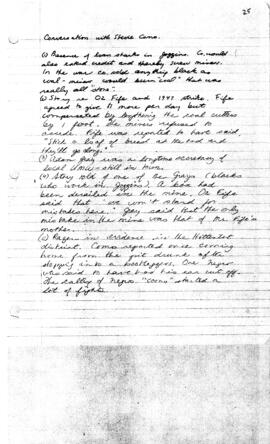 25
Conversation with Steve Como.
(1) Presence of loan sharks in Joggins. Co. would
also extend credit and thereby screw miner.
In the war co. sold anything black as
coal - miser would burn "coal" that was
really all "stone".
(2) Story re Oz Fife and 1947 strike. Fife
agreed to give $1 more per day but
compensated by lengthening the road cutters
by 1 foot. The miners refused to
accede. Fife was reported to have said,
"Stick a loaf of bread at the end and
they'll go along."
(3) Adam Gray was a longtime secretary of
local & mechanic in mine.
(4) Story told of one of the Grays (blacks
who work in Joggins). A box had
been derailed in the mine. Oz Fife
said that "we won't stand for
mistakes here." Gray said that the only
mistake in the mines was that of Mr. Fife's
mother.
(5) Racism in evidence in the Hottentot
district. Como reported once coming
home from the pit drunk after
stopping into a bootleggers. One Negro
was said to have had his ear cut off.
The calling of Negros "coons" started a
lot of fights.